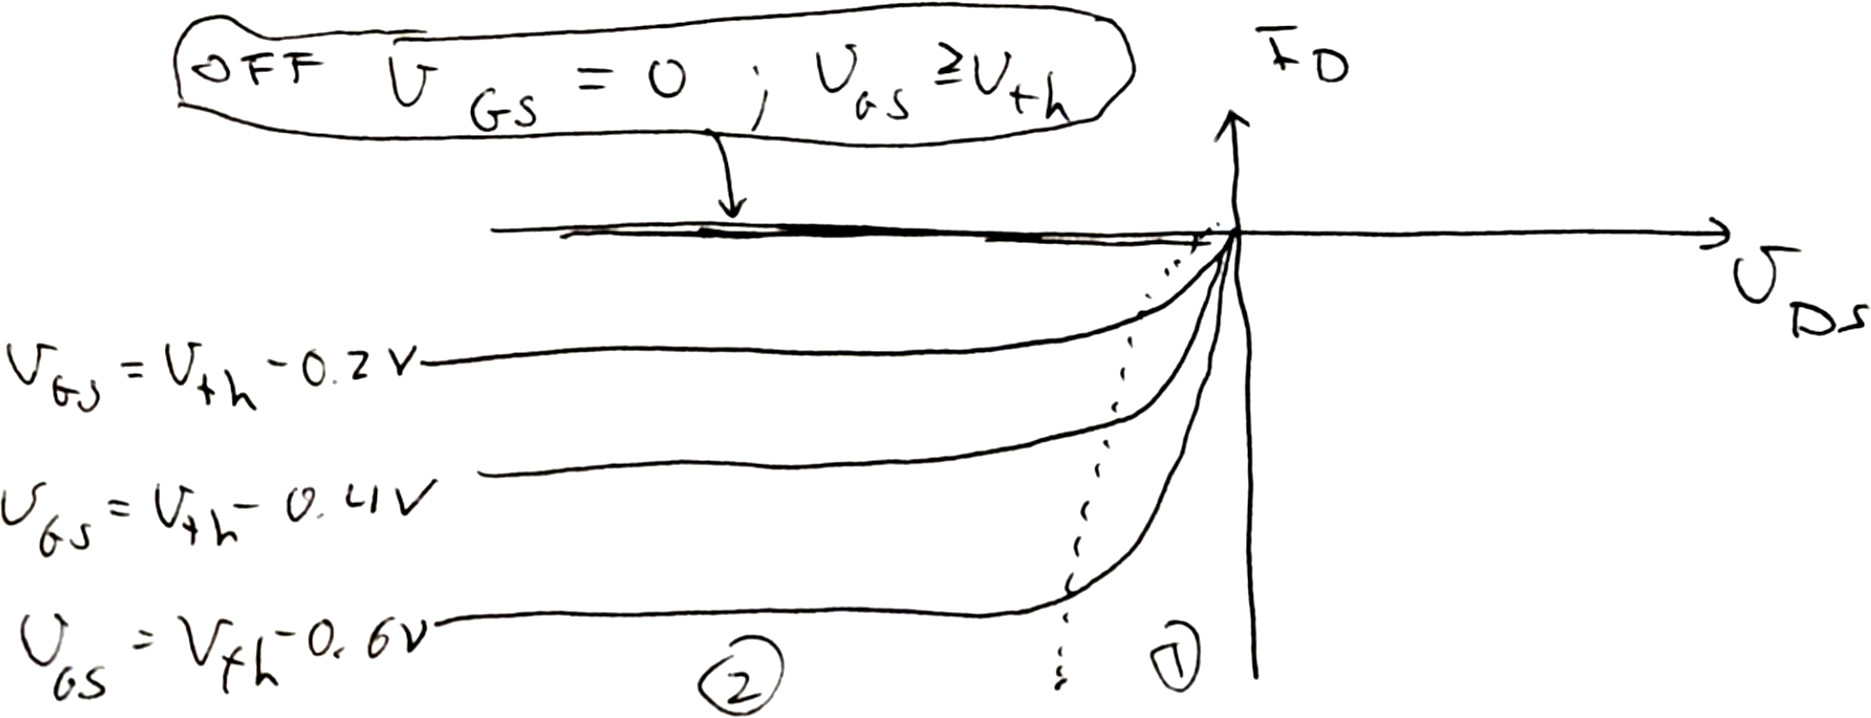 OFF V_GS = 0 ; V_GS ≥ V_th
I_D
V_DS
V_GS = V_th - 0.2 V
V_GS = V_th - 0.4 V
V_GS = V_th - 0.6 V
②
①